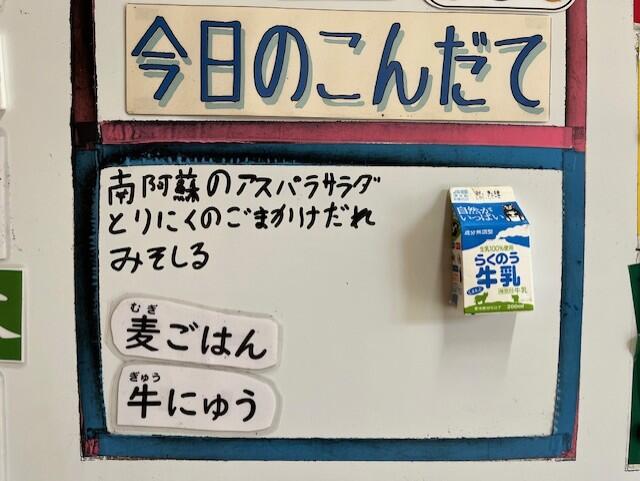 今日のこんだて
南阿蘇のアスパラサラダ
とりにくのごまかけだれ
みそしる
自然が
いっぱい
成分無調整
生乳100%使用
らくのう
牛乳
種類別牛乳
200ml
むぎ
麦ごはん
ぎゅう
牛にゅう